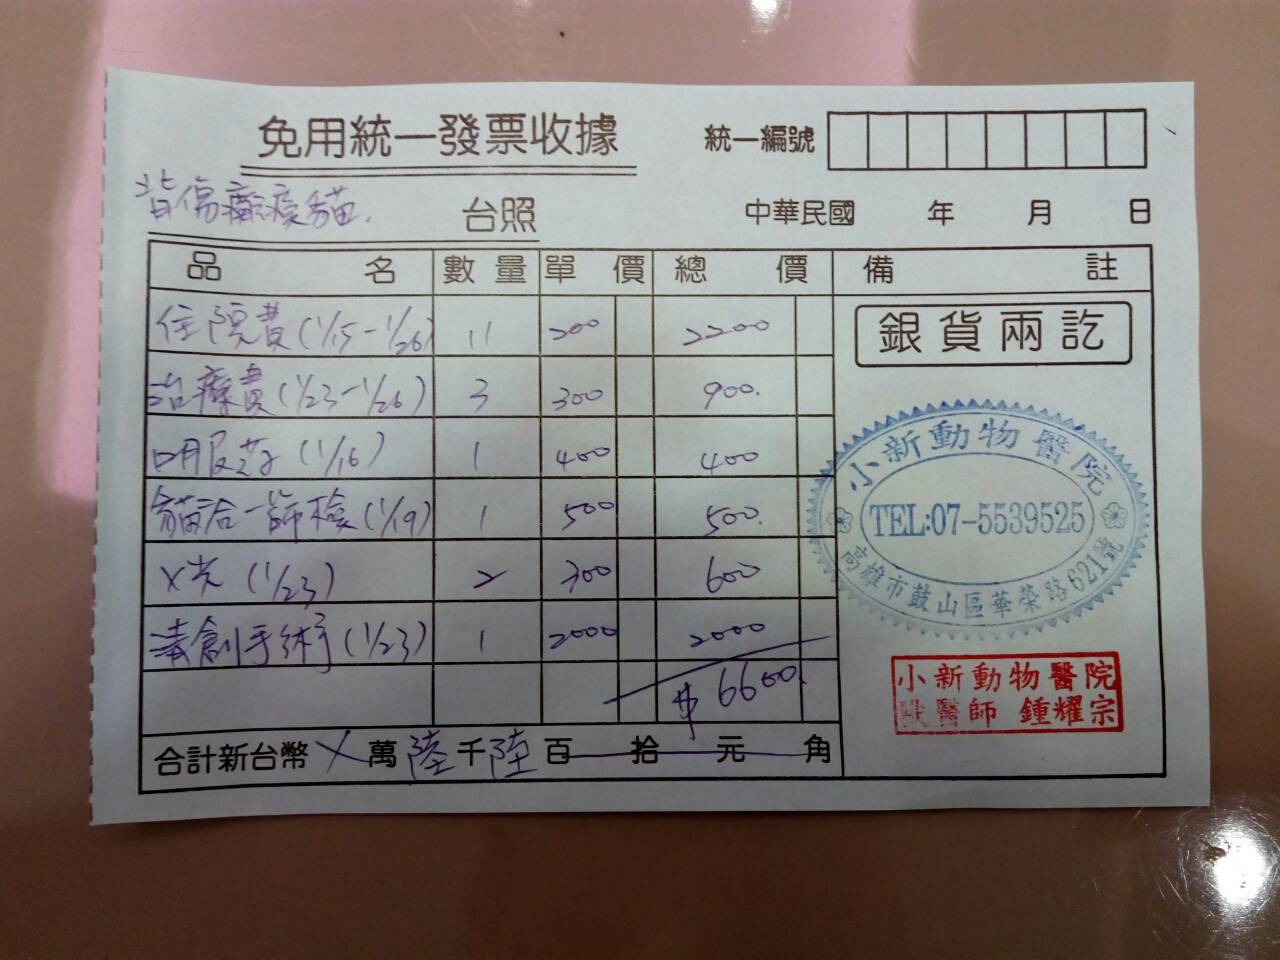 免用統一發票收據
統一編號
背傷癱瘓貓. 台照
中華民國 年 月 日
品名 數量 單價 總價 備註
住院費(1/15-1/26) 11 200 2200
治療費(1/23-1/26) 3 300 900.
口服藥(1/16) 1 400 400
(1/19) 1 500 500.
X光(1/23) 2 300 600
清創手術(1/23) 1 2000 2000
$6600.
合計新台幣 X 萬 陸 千 陸 百 拾 元 角
銀貨兩訖
小新動物醫院
TEL:07-5539525
高雄市鼓山區華榮路621號
小新動物醫院
獸醫師 鍾耀宗